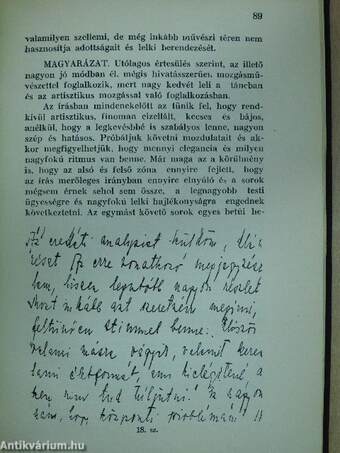 89
valamilyen szellemi, de még inkább művészi téren nem
hasznosítja adottságait és lelki berendezését.
MAGYARÁZAT. Utólagos értesülés szerint, az illető
nagyon jó módban él, mégis hivatásszerűen mozgásmű-
vészettel foglalkozik, mert nagy kedvét leli a táncban
és az artisztikus mozgással való foglalkozásban.
Az írásban mindenekelőtt az tűnik fel, hogy rend-
kívül artisztikus, finoman cizellált, kecses és bájos,
anélkül, hogy a legkevésbbé is szabályos lenne, nagyon
szép és hatásos. Próbáljuk követni mozdulatait és ak-
kor megfigyelhetjük, hogy mennyi elegancia és milyen
nagyfokú ritmus van benne. Már maga az a körülmény
is, hogy az alsó és felső zóna ennyire fejlett, hogy
az írás merőleges irányban ennyire elnyúló és a sorok
mégsem érnek sehol sem össze, a legnagyobb testi
ügyességre és nagyfokú lelki hajlékonyságra engednek
következtetni. Az egymást követő sorok egyes betűi be-
Az eredeti analysist küldöm,
Az erre vonatkozó megjegyzése
nagyon
inkább azt szeretném megírni,
feltűnően stimmel benne. Először
valami másra vágyik, valamit keres
életformát, ami kielégítené, a
nem tud túljutni! Ez nagyon
központi problémám!
18. sz.
Antikvárium.hu